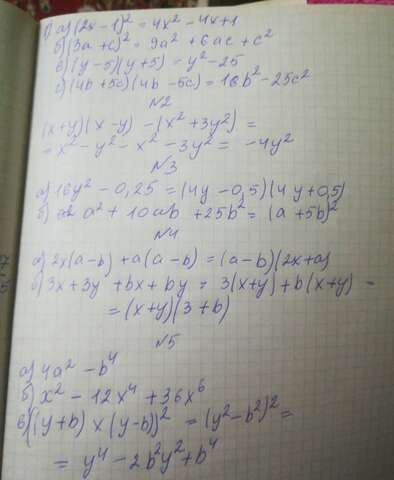 1) а) (2x - 1)² = 4x² - 4x + 1
б) (3a + c)² = 9a² + 6ac + c²
в) (y - 5)(y + 5) = y² - 25
с) (4b + 5c)(4b - 5c) = 16b² - 25c²
№2
(x + y)(x - y) - (x² + 3y²) =
= x² - y² - x² - 3y² = -4y²
№3
а) 16y² - 0,25 = (4y - 0,5)(4y + 0,5)
б) a² + 10ab + 25b² = (a + 5b)²
№4
а) 2x(a - b) + a(a - b) = (a - b)(2x + a)
б) 3x + 3y + bx + by = 3(x + y) + b(x + y) =
= (x + y)(3 + b)
№5
а) 4a² - b⁴
б) x² - 12x⁴ + 36x⁶
в) ((y + b) × (y - b))² = (y² - b²)² =
= y⁴ - 2b²y² + b⁴